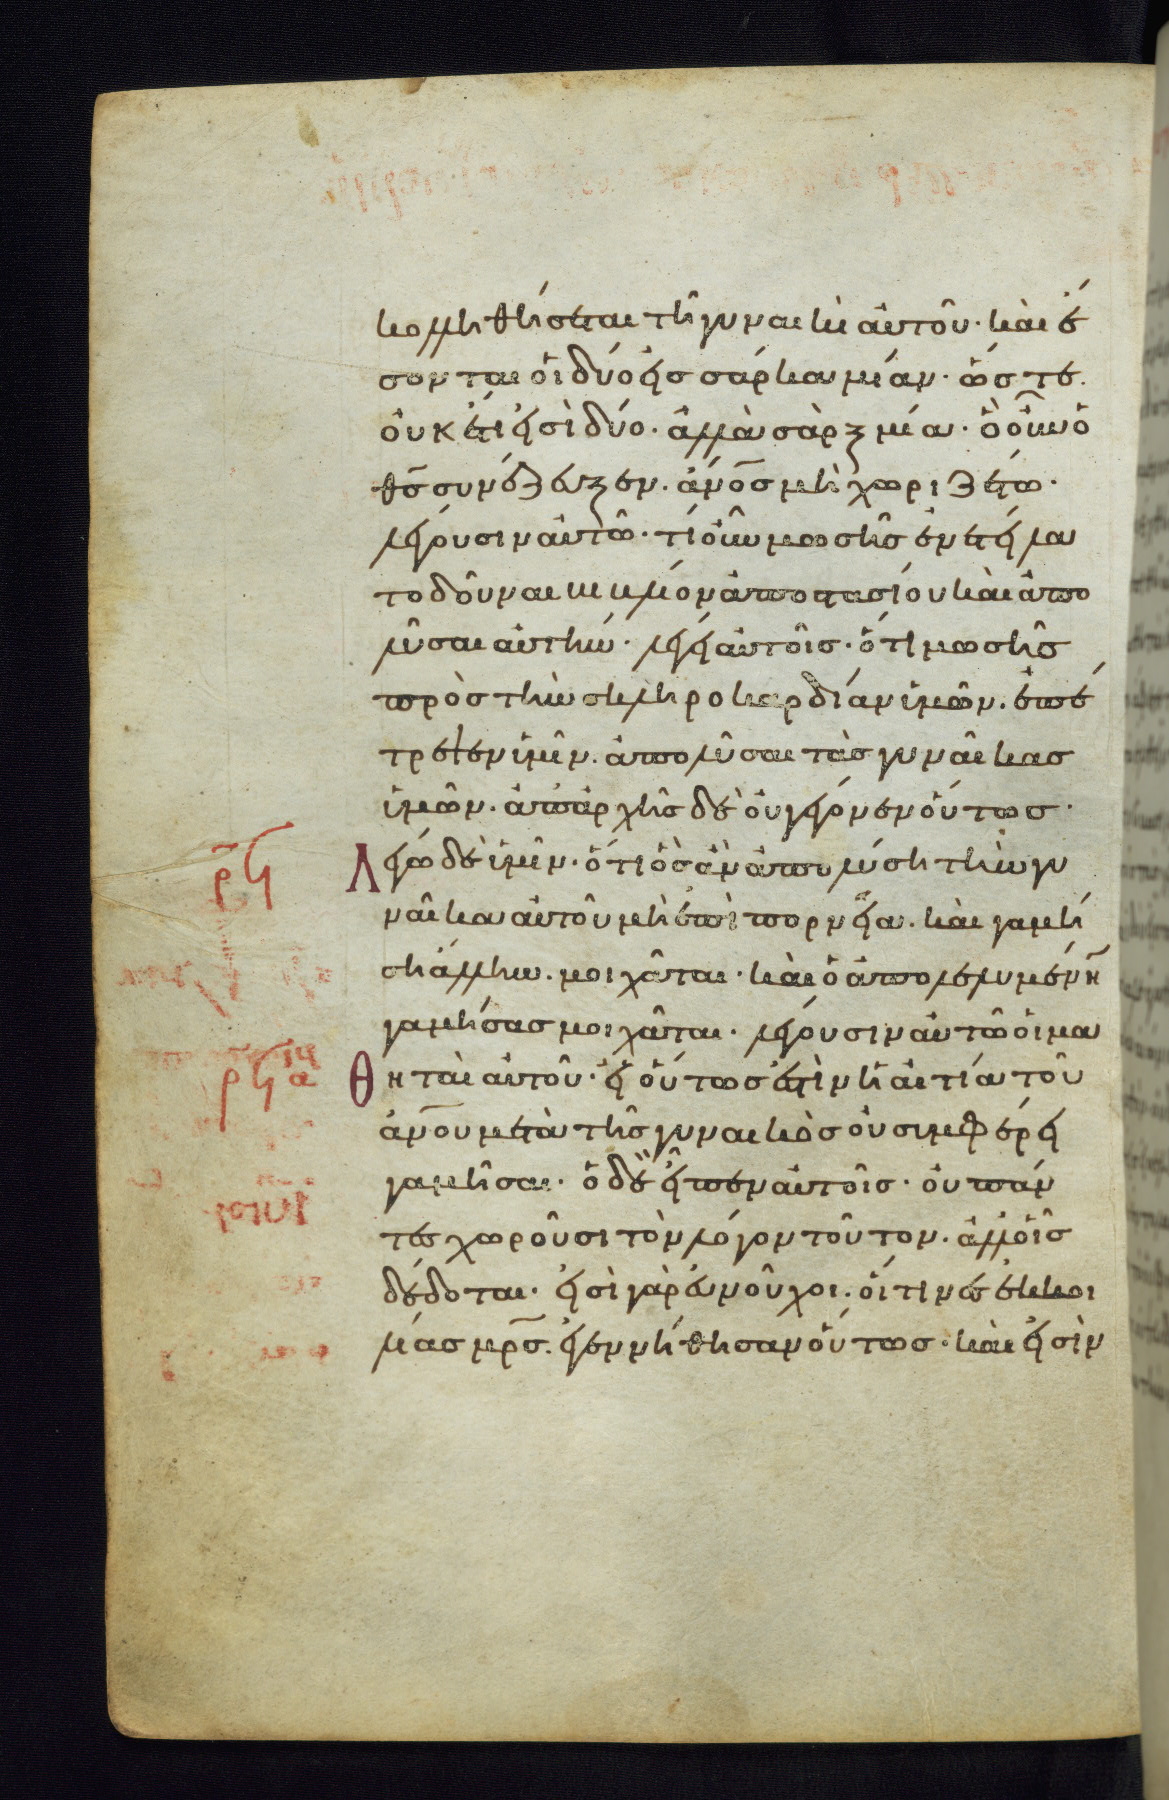 κολληθήσεται τῆ γυναικὶ ἀυτοῦ· καὶ ἔ
σονται ὁι δύο ἐις σάρκα μίαν· ὥστε
ὀυκέτι ἐισὶ δύο· ἀλλὰ σὰρξ μία· ὃ ὀῦν ὁ
θς̅ συνέζευξεν. ἀν̅ος μὴ χωριζέτω·
λέγουσιν ἀυτῶ· τί ὀῦν μωσῆς ἐνετείλα
το δοῦναι βιβλίον ἀποστασίου καὶ ἀπο
λῦσαι ἀυτήν· λέγει ἀυτοῖς· ὅτι μωσῆς
πρὸς τὴν σκληροκαρδίαν ὑμῶν. ἐπέ
τρεψεν ὑμῖν. ἀπολῦσαι τὰς γυναῖκας
ὑμῶν. ἀπαρχῆς δὲ ὀυ γέγονεν ὅυτως·
ρ̅ϟ Λέγω δὲ ὑμῖν· ὅτι ὃς ἀν ἀπολύση τὴν γυ
ναῖκα ἀυτοῦ μὴ ἐπὶ πορνεία. καὶ γαμή
ση ἄλλην. μοιχᾶται· καὶ ὁ ἀπολελυμένην
γαμήσας μοιχᾶται. λέγουσιν ἀυτῶ ὁι μα
ρϟα θηταὶ ἀυτοῦ· ἐι ὅυτως ἐστὶν ἡ ἀιτία τοῦ
ἀν̅ου μετὰ τῆς γυναικὸς ὀυ συμφέρει
γαμῆσαι· ὁ δὲ ἐῖπεν ἀυτοῖς· ὀυ πάν
τες χωροῦσι τὸν λόγον τοῦτον. ἀλλ' ὁῖς
δέδοται· ἐισὶ γὰρ ἐυνοῦχοι. ὅιτινες ἐκ κοι
λίας μρ̅ς. ἐγεννήθησαν ὅυτως· καὶ ἐισὶν